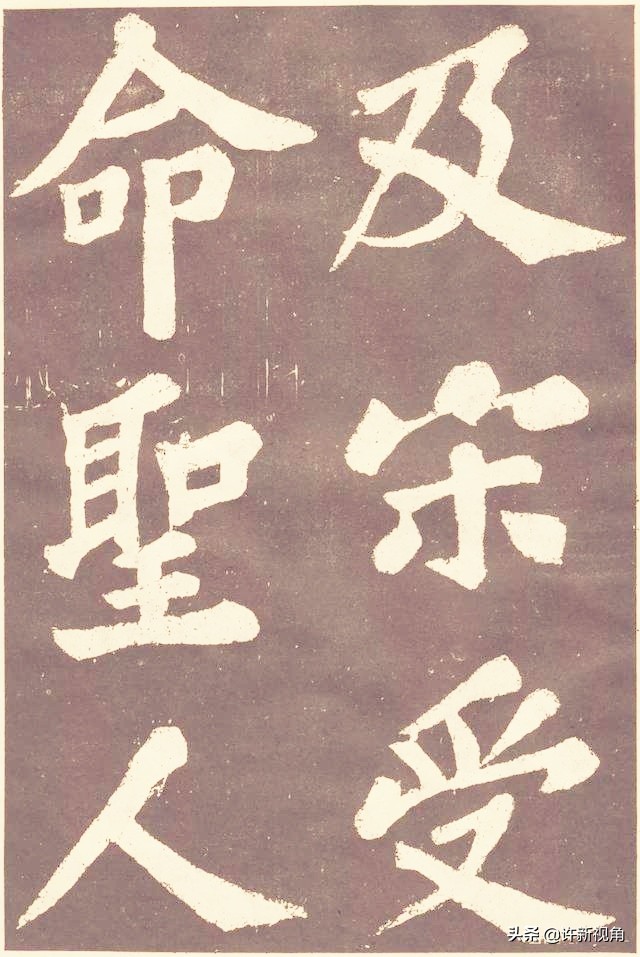 及宋受
命聖人
头条 @许新视角